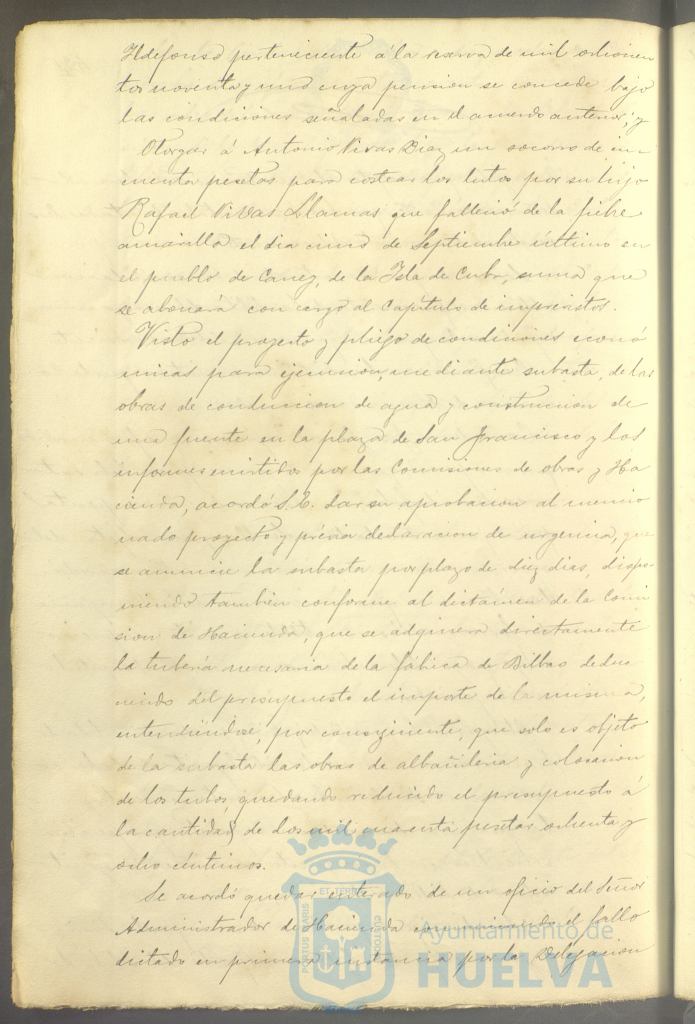 Yldefonso perteneciente á la reserva de mil ochocien
tos noventa y uno cuya pension se concede bajo
las condiciones señaladas en el acuerdo anterior; y
Otorgar á Antonio Vivas Diaz un socorro de cin-
cuenta pesetas para costear los lutos por su hijo
Rafael Vivas Llamas que falleció de la fiebre
amarilla el dia cinco de Septiembre último en
el pueblo de de la Isla de Cuba, suma que
se abonará con cargo al Capítulo de imprevistos.
Visto el proyecto y pliego de condiciones econó
micas para ejecucion, mediante subasta, de las
obras de conduccion de agua y construccion de
una fuente en la plaza de San Francisco y los
informes emitidos por las Comisiones de obras y Ha
cienda, acordó S.E. dar su aprobacion al mencio
nado proyecto y prévia declaracion de urgencia, que
se anuncie la subasta por plazo de diez dias, dispo-
niendo tambien conforme al dictámen de la Comi
sion de Hacienda, que se adquiera directamente
la tubería necesaria de la fábrica de Bilbao dedu
ciendo del presupuesto el importe de la misma,
entendiéndose, por consiguiente, que solo es objeto
de la subasta las obras de albañileria y colocacion
de los tubos, quedando reducido el presupuesto á
la cantidad de dos mil cuarenta pesetas ochenta y
ocho céntimos.
Se acordó quedar enterado de un oficio del Señor
Administrador de Hacienda comunicando el fallo
dictado en primera instancia por la Delegacion
PORTUS MARIS ET TERRÆ CUSTODIA
Ayuntamiento de
HUELVA